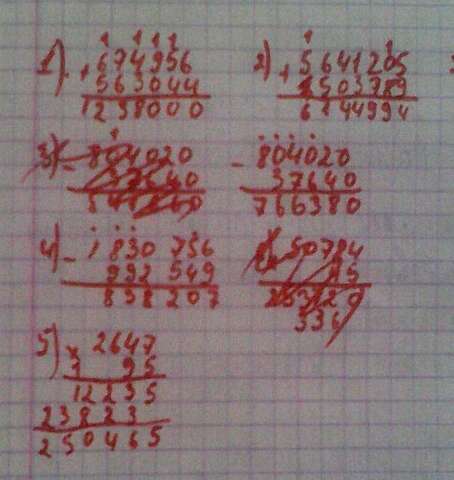 1) 1 111
+ 674956
563044
1238000
2) 1 1
+ 5641205
503789
6144994
3) - 804020
37640
766380
4) - 1830 756
992 549
838 207
5) x 2647
95
12235
23823
250465